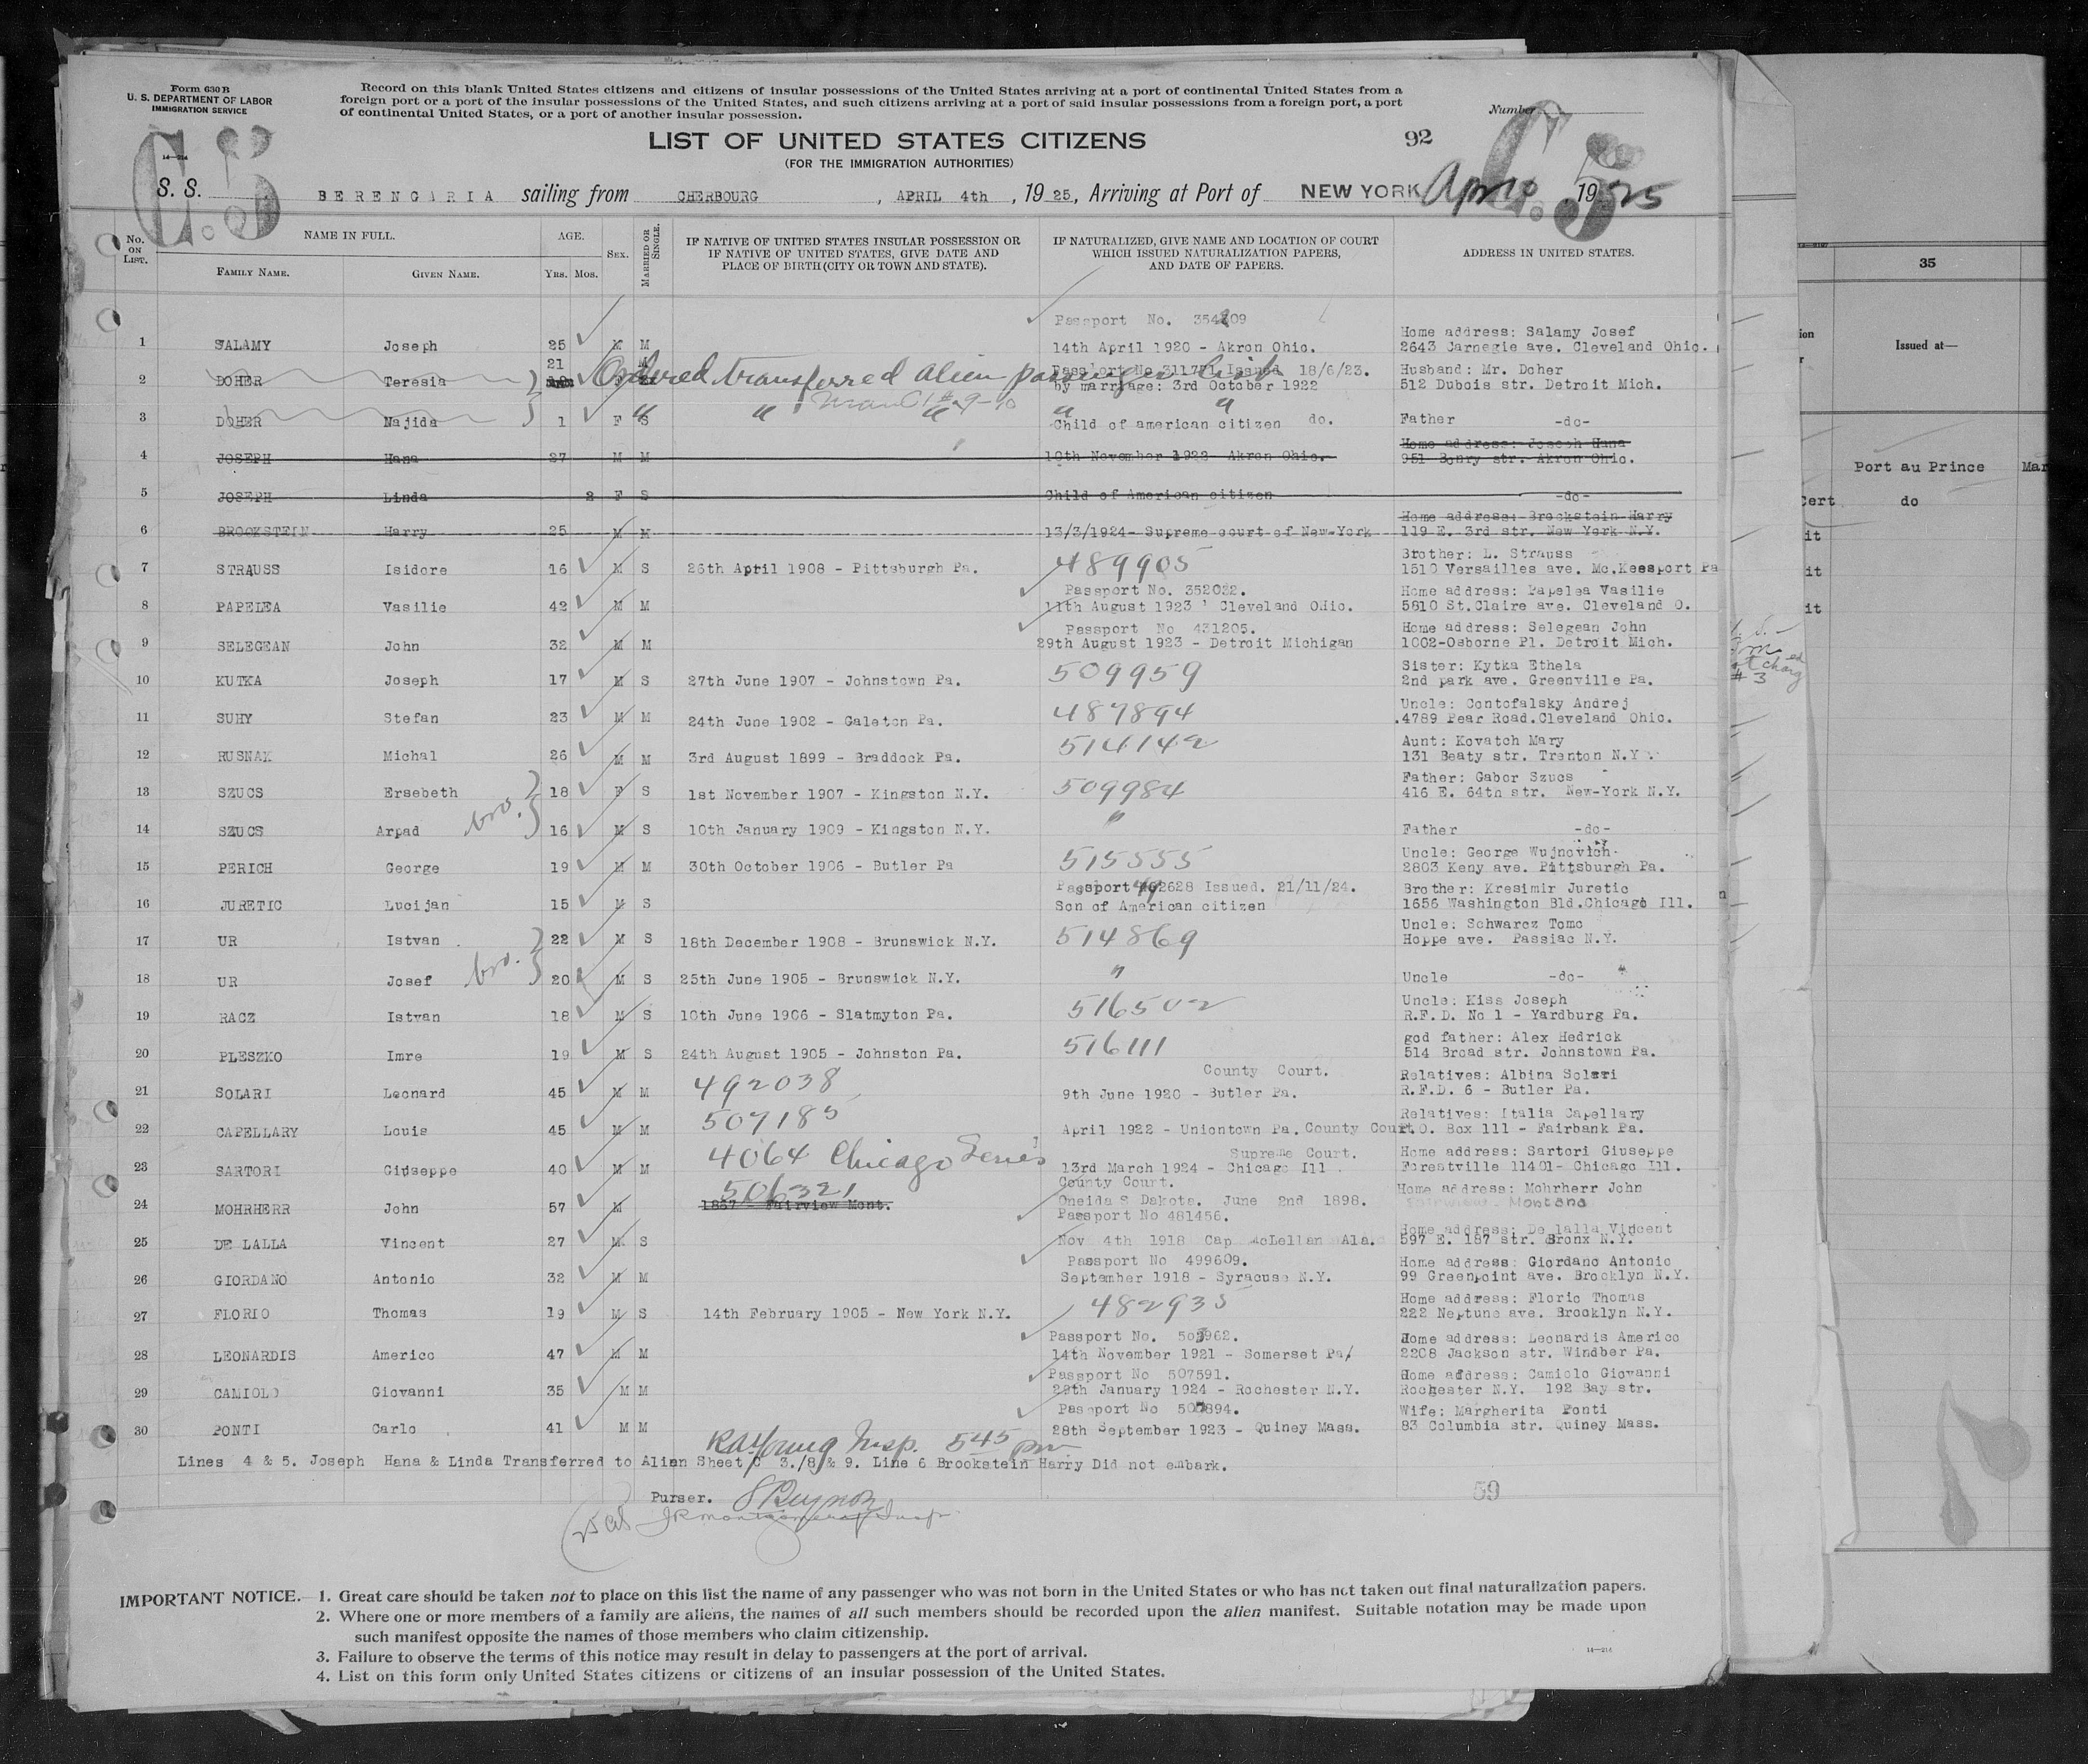 Form 630 B
U. S. DEPARTMENT OF LABOR
IMMIGRATION SERVICE
Record on this blank United States citizens and citizens of insular possessions of the United States arriving at a port of continental United States from a
foreign port or a port of the insular possessions of the United States, and such citizens arriving at a port of said insular possessions from a foreign port, a port
of continental United States, or a port of another insular possession.
Number
LIST OF UNITED STATES CITIZENS
92
(FOR THE IMMIGRATION AUTHORITIES)
S. S. BERENGARIA sailing from CHERBOURG, APRIL 4th, 1925, Arriving at Port of NEW YORK Apr 10, 1925
No. ON LIST. NAME IN FULL. AGE. SEX. MARRIED OR SINGLE. IF NATIVE OF UNITED STATES INSULAR POSSESSION OR IF NATIVE OF UNITED STATES, GIVE DATE AND PLACE OF BIRTH (CITY OR TOWN AND STATE). IF NATURALIZED, GIVE NAME AND LOCATION OF COURT WHICH ISSUED NATURALIZATION PAPERS, AND DATE OF PAPERS. ADDRESS IN UNITED STATES.
FAMILY NAME. GIVEN NAME. YRS. MOS.
Passport No. 354209 Home address: Salamy Josef
1 SALAMY Joseph 25 M M 14th April 1920 - Akron Ohio. 2643 Carnegie ave. Cleveland Ohio.
21 Ordered transferred alien passenger list Passport No 311771 Issued 18/6/23. Husband: Mr. Doher
2 DOHER Teresia F by marriage: 3rd October 1922 512 Dubois str. Detroit Mich.
3 DOHER Najida 1 F S " " " " " Child of american citizen do. Father -do-
Home address: Joseph Hana
4 JOSEPH Hana 27 M M 10th November 1922 Akron Ohio. 951 Bonry str. Akron Ohio.
5 JOSEPH Linda 2 F S Child of American citizen -do-
Home address: Brookstein Harry
6 BROOKSTEIN Harry 25 M M 13/3/1924- Supreme court of New-York 119 E. 3rd str. New York N.Y.
489905 Brother: L. Strauss
7 STRAUSS Isidore 16 M S 26th April 1908 - Pittsburgh Pa. 1510 Versailles ave. Mc.Keesport Pa
Passport No. 352022. Home address: Papelea Vasilie
8 PAPELEA Vasilie 42 M M 11th August 1923 Cleveland OHio. 5810 St.Claire ave. Cleveland O.
Passport No 431205. Home address: Selegean John
9 SELEGEAN John 32 M M 29th August 1923 - Detroit Michigan 1002-Osborne Pl. Detroit Mich.
509959 Sister: Kytka Ethela
10 KUTKA Joseph 17 M S 27th June 1907 - Johnstown Pa. 2nd park ave. Greenville Pa.
487894 Uncle: Contofalsky Andrej
11 SUHY Stefan 23 M M 24th June 1902 - Galeton Pa. .4789 Pear Road.Cleveland Ohio.
514142 Aunt: Kovatch Mary
12 RUSNAK Michal 26 M M 3rd August 1899 - Braddock Pa. 131 Beaty str. Trenton N.Y
509984 Father: Gabor Szucs
13 SZUCS Ersebeth 18 F S 1st November 1907 - Kingston N.Y. 416 E. 64th str. New-York N.Y.
bro.
14 SZUCS Arpad 16 M S 10th January 1909 - Kingston N.Y. " Father -do-
515555 Uncle: George Wujnovich
15 PERICH George 19 M M 30th October 1906 - Butler Pa 2803 Keny ave. Pittsburgh Pa.
Passport 492628 Issued. 21/11/24. Brother: Kresimir Juretic
16 JURETIC Lucijan 15 M S Son of American citizen 1656 Washington Bld.Chicago Ill.
514869 Uncle: Schwarcz Tomo
17 UR Istvan 22 M S 18th December 1908 - Brunswick N.Y. Hoppe ave. Passiac N.Y.
bro.
18 UR Josef 20 M S 25th June 1905 - Brunswick N.Y. " Uncle -do-
516502 Uncle: Kiss Joseph
19 RACZ Istvan 18 M S 10th June 1906 - Slatmyton Pa. R.F.D. No 1 - Yardburg Pa.
516111 god father: Alex Hedrick
20 PLESZKO Imre 19 M S 24th August 1905 - Johnston Pa. 514 Broad str. Johnstown Pa.
492038 County Court. Relatives: Albina Solari
21 SOLARI Leonard 45 M M 9th June 1920 - Butler Pa. R.F.D. 6 - Butler Pa.
507185 Relatives: Italia Capellary
22 CAPELLARY Louis 45 M M April 1922 - Uniontown Pa. County Court. P.O. Box 111 - Fairbank Pa.
4064 Chicago Series Supreme Court. Home address: Sartori Giuseppe
23 SARTORI Giuseppe 40 M M 13rd March 1924 - Chicago Ill. Forestville 11401- Chicago Ill.
506321 County Court. Home address: Mohrherr John
24 MOHRHERR John 57 M 1867 - Fairview Mont. Oneida S Dakota. June 2nd 1898. Fairview Montana
Passport No 481456. Home address: De lalla Vincent
25 DE LALLA Vincent 27 M S Nov 4th 1918 Cap McLellan Ala. 597 E. 187 str. Bronx N.Y.
Passport No 499609. Home address: Giordano Antonio
26 GIORDANO Antonio 32 M M September 1918 - Syracuse N.Y. 99 Greenpoint ave. Brooklyn N.Y.
482935 Home address: Florio Thomas
27 FLORIO Thomas 19 M S 14th February 1905 - New York N.Y. 222 Neptune ave. Brooklyn N.Y.
Passport No. 503962. Home address: Leonardis Americo
28 LEONARDIS Americo 47 M M 14th November 1921 - Somerset Pa/ 2208 Jackson str. Windber Pa.
Passport No 507591. Home address: Camiolo Giovanni
29 CAMIOLO Giovanni 35 M M 28th January 1924 - Rochester N.Y. Rochester N.Y. 192 Bay str.
Passport No 507894. Wife: Margherita Ponti
30 PONTI Carlo 41 M M 28th September 1923 - Quiney Mass. 83 Columbia str. Quiney Mass.
RA Young Insp. 545 pm
Lines 4 & 5. Joseph Hana & Linda Transferred to Alien Sheet C 3./8 & 9. Line 6 Brookstein Harry Did not embark.
Purser.
59
IMPORTANT NOTICE.—1. Great care should be taken not to place on this list the name of any passenger who was not born in the United States or who has not taken out final naturalization papers.
2. Where one or more members of a family are aliens, the names of all such members should be recorded upon the alien manifest. Suitable notation may be made upon
such manifest opposite the names of those members who claim citizenship.
3. Failure to observe the terms of this notice may result in delay to passengers at the port of arrival.
4. List on this form only United States citizens or citizens of an insular possession of the United States.
14—214
35
Issued at—
Port au Prince
do